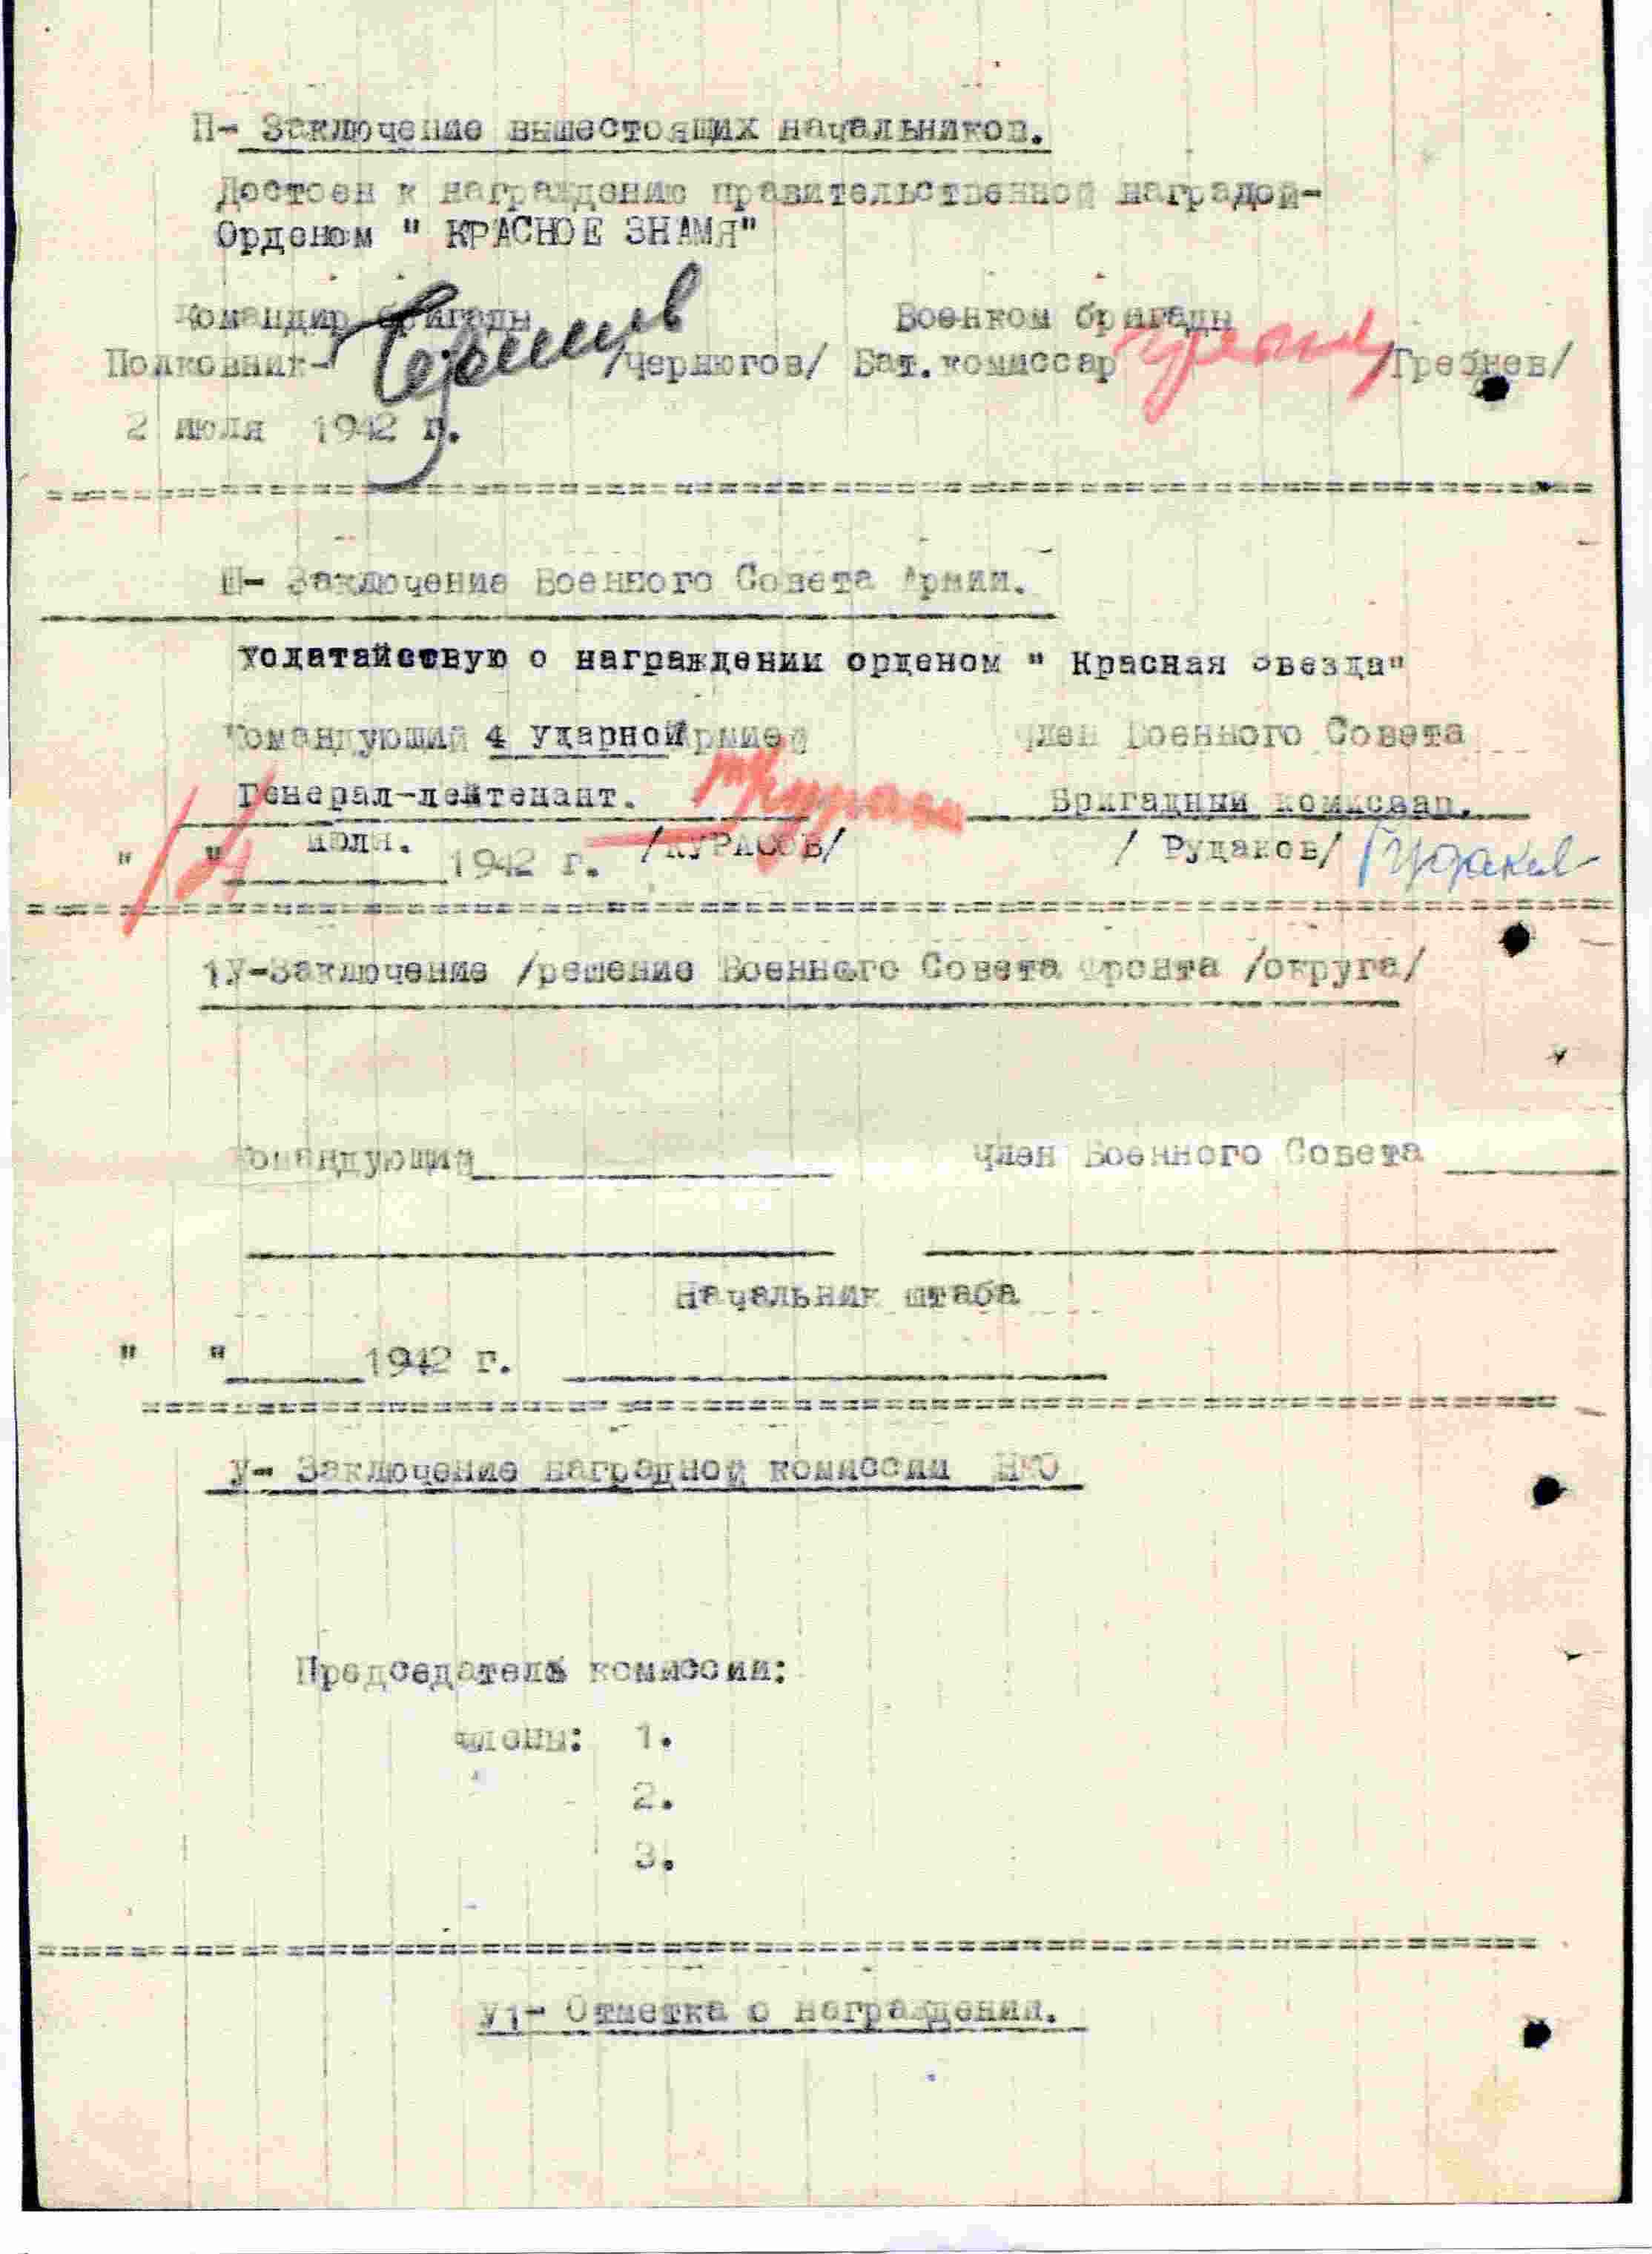 П- Заключение вышестоящих начальников.
Достоен к награждению правительственной наградой-
Орденом " КРАСНОЕ ЗНАМЯ"
Командир бригады Военком бригады
Полковник- /Чернюгов/ Бат.комиссар /Гребнев/
2 июля 1942 г.
Ш- Заключение Военного Совета Армии.
Ходатайствую о награждении орденом " Красная Звезда"
Командующий 4 ударной Армией Член Военного Совета
Генерал-лейтенант. Бригадный комиссар.
" " июля. 1942 г. /КУРАСОВ/ / Рудаков/ Рудаков
1У-Заключение /решение Военного Совета фронта /округа/
Командующий Член Военного Совета
Начальник штаба
" " 1942 г.
У- Заключение наградной комиссии НКО
Председатель комиссии:
члены: 1.
2.
3.
У1- Отметка о награждении.